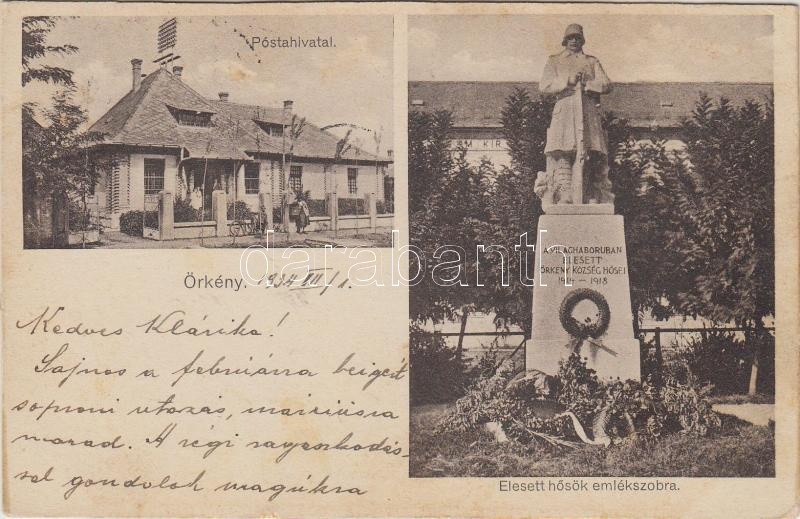 Póstahivatal.
KIR
A VILÁGHÁBORUBAN
ELESETT
ÖRKÉNY KÖZSÉG HŐSEI
1914 – 1918
darabanth.com
Örkény. 1934 III/1.
Kedves Klárika!
Sajnos a februárra beigért
soproni utazás, máriusra
marad. A régi ragaszkodás-
sal gondolok magukra
Elesett hősök emlékszobra.